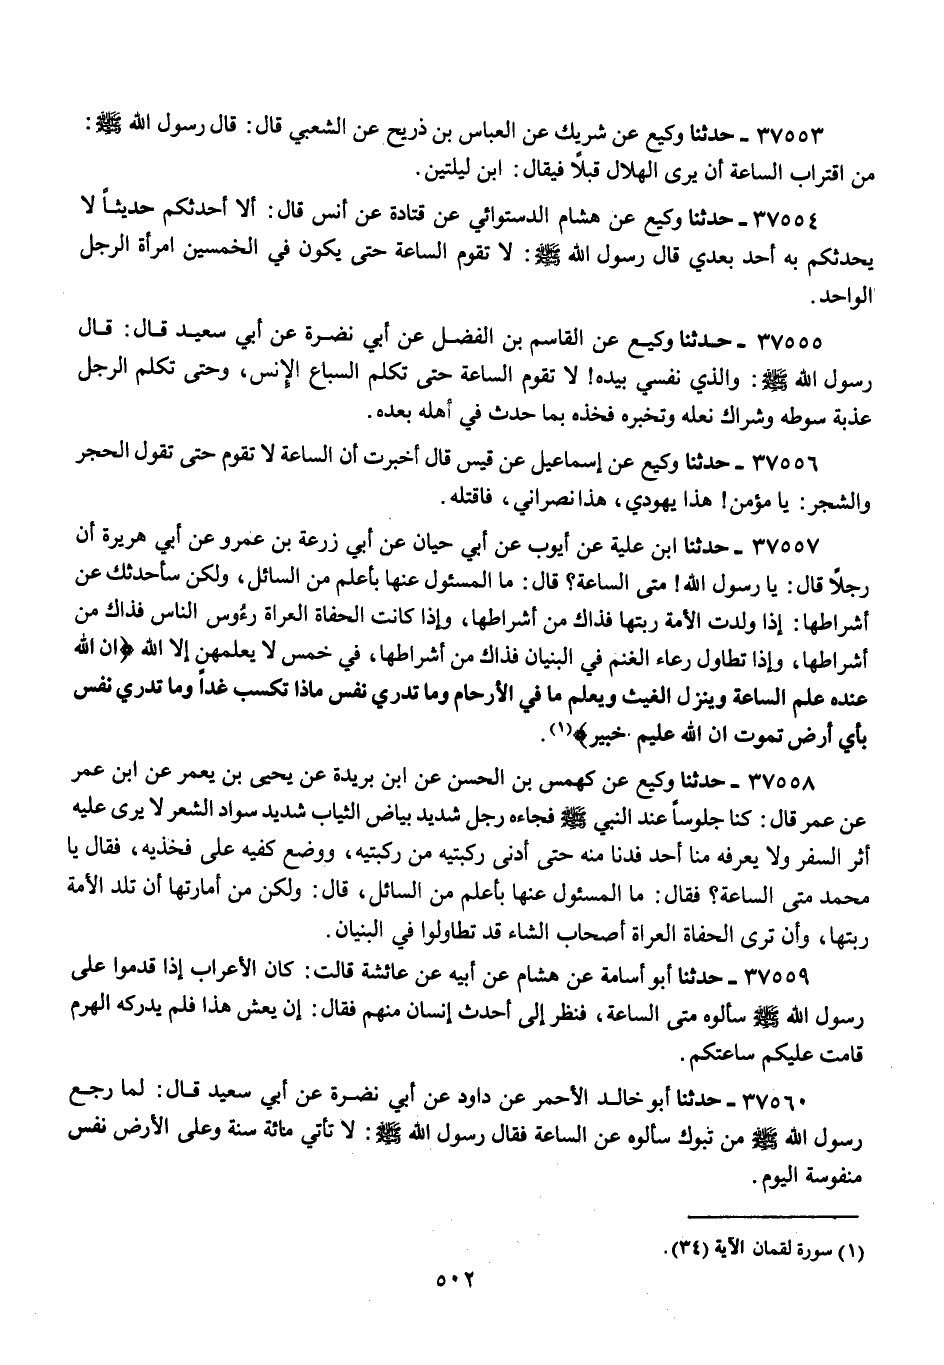 ٣٧٥٥٣ ـ حدثنا وكيع عن شريك عن العباس بن ذريح عن الشعبي قال: قال رسول الله ﷺ:
من اقتراب الساعة أن يرى الهلال قبلاً فيقال: ابن ليلتين.
٣٧٥٥٤ ـ حدثنا وكيع عن هشام الدستوائي عن قتادة عن أنس قال: ألا أحدثكم حديثاً لا
يحدثكم به أحد بعدي قال رسول الله ﷺ: لا تقوم الساعة حتى يكون في الخمسين امرأة الرجل
الواحد.
٣٧٥٥٥ ـ حدثنا وكيع عن القاسم بن الفضل عن أبي نضرة عن أبي سعيد قال: قال
رسول الله ﷺ: والذي نفسي بيده! لا تقوم الساعة حتى تكلم السباع الإنس، وحتى تكلم الرجل
عذبة سوطه وشراك نعله وتخبره فخذه بما حدث في أهله بعده.
٣٧٥٥٦ ـ حدثنا وكيع عن إسماعيل عن قيس قال أخبرت أن الساعة لا تقوم حتى تقول الحجر
والشجر: يا مؤمن! هذا يهودي، هذا نصراني، فاقتله.
٣٧٥٥٧ ـ حدثنا ابن علية عن أيوب عن أبي حيان عن أبي زرعة بن عمرو عن أبي هريرة أن
رجلاً قال: يا رسول الله! متى الساعة؟ قال: ما المسئول عنها بأعلم من السائل، ولكن سأحدثك عن
أشراطها: إذا ولدت الأمة ربتها فذاك من أشراطها، وإذا كانت الحفاة العراة رءوس الناس فذاك من
أشراطها، وإذا تطاول رعاء الغنم في البنيان فذاك من أشراطها، في خمس لا يعلمهن إلا الله ﴿ان الله
عنده علم الساعة وينزل الغيث ويعلم ما في الأرحام وما تدري نفس ماذا تكسب غداً وما تدري نفس
بأي أرض تموت ان الله عليم خبير﴾(١).
٣٧٥٥٨ ـ حدثنا وكيع عن كهمس بن الحسن عن ابن بريدة عن يحيى بن يعمر عن ابن عمر
عن عمر قال: كنا جلوساً عند النبي ﷺ فجاءه رجل شديد بياض الثياب شديد سواد الشعر لا يرى عليه
أثر السفر ولا يعرفه منا أحد فدنا منه حتى أدنى ركبتيه من ركبتيه، ووضع كفيه على فخذيه، فقال يا
محمد متى الساعة؟ فقال: ما المسئول عنها بأعلم من السائل، قال: ولكن من أمارتها أن تلد الأمة
ربتها، وأن ترى الحفاة العراة أصحاب الشاء قد تطاولوا في البنيان.
٣٧٥٥٩ ـ حدثنا أبو أسامة عن هشام عن أبيه عن عائشة قالت: كان الأعراب إذا قدموا على
رسول الله ﷺ سألوه متى الساعة، فنظر إلى أحدث إنسان منهم فقال: إن يعش هذا فلم يدركه الهرم
قامت عليكم ساعتكم.
٣٧٥٦٠ ـ حدثنا أبو خالد الأحمر عن داود عن أبي نضرة عن أبي سعيد قال: لما رجع
رسول الله ﷺ من تبوك سألوه عن الساعة فقال رسول الله ﷺ: لا تأتي مائة سنة وعلى الأرض نفس
منفوسة اليوم.
(١) سورة لقمان الآية (٣٤).
٥٠٢